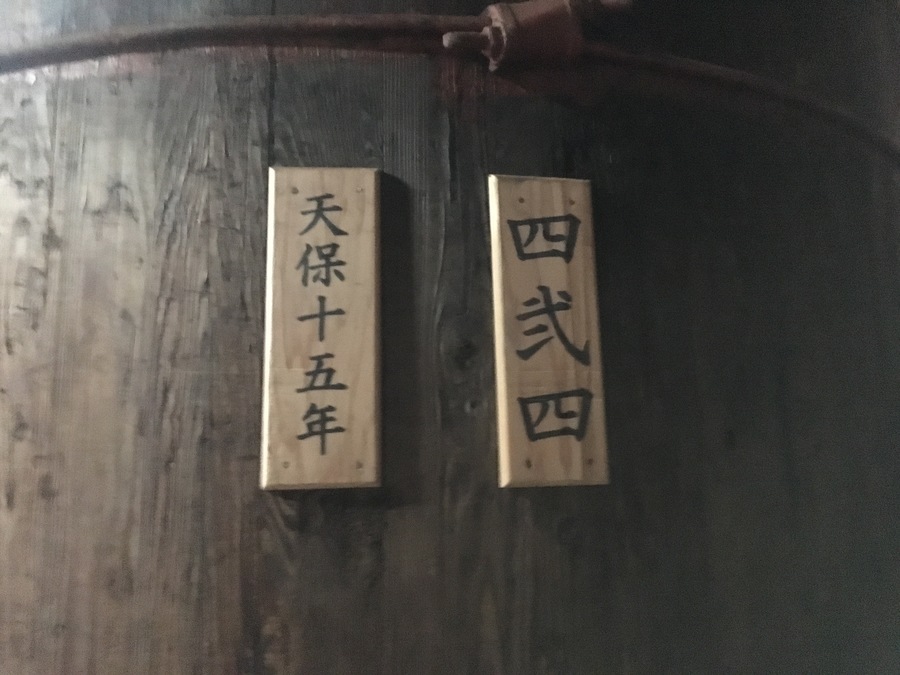 四弐四
天保十五年